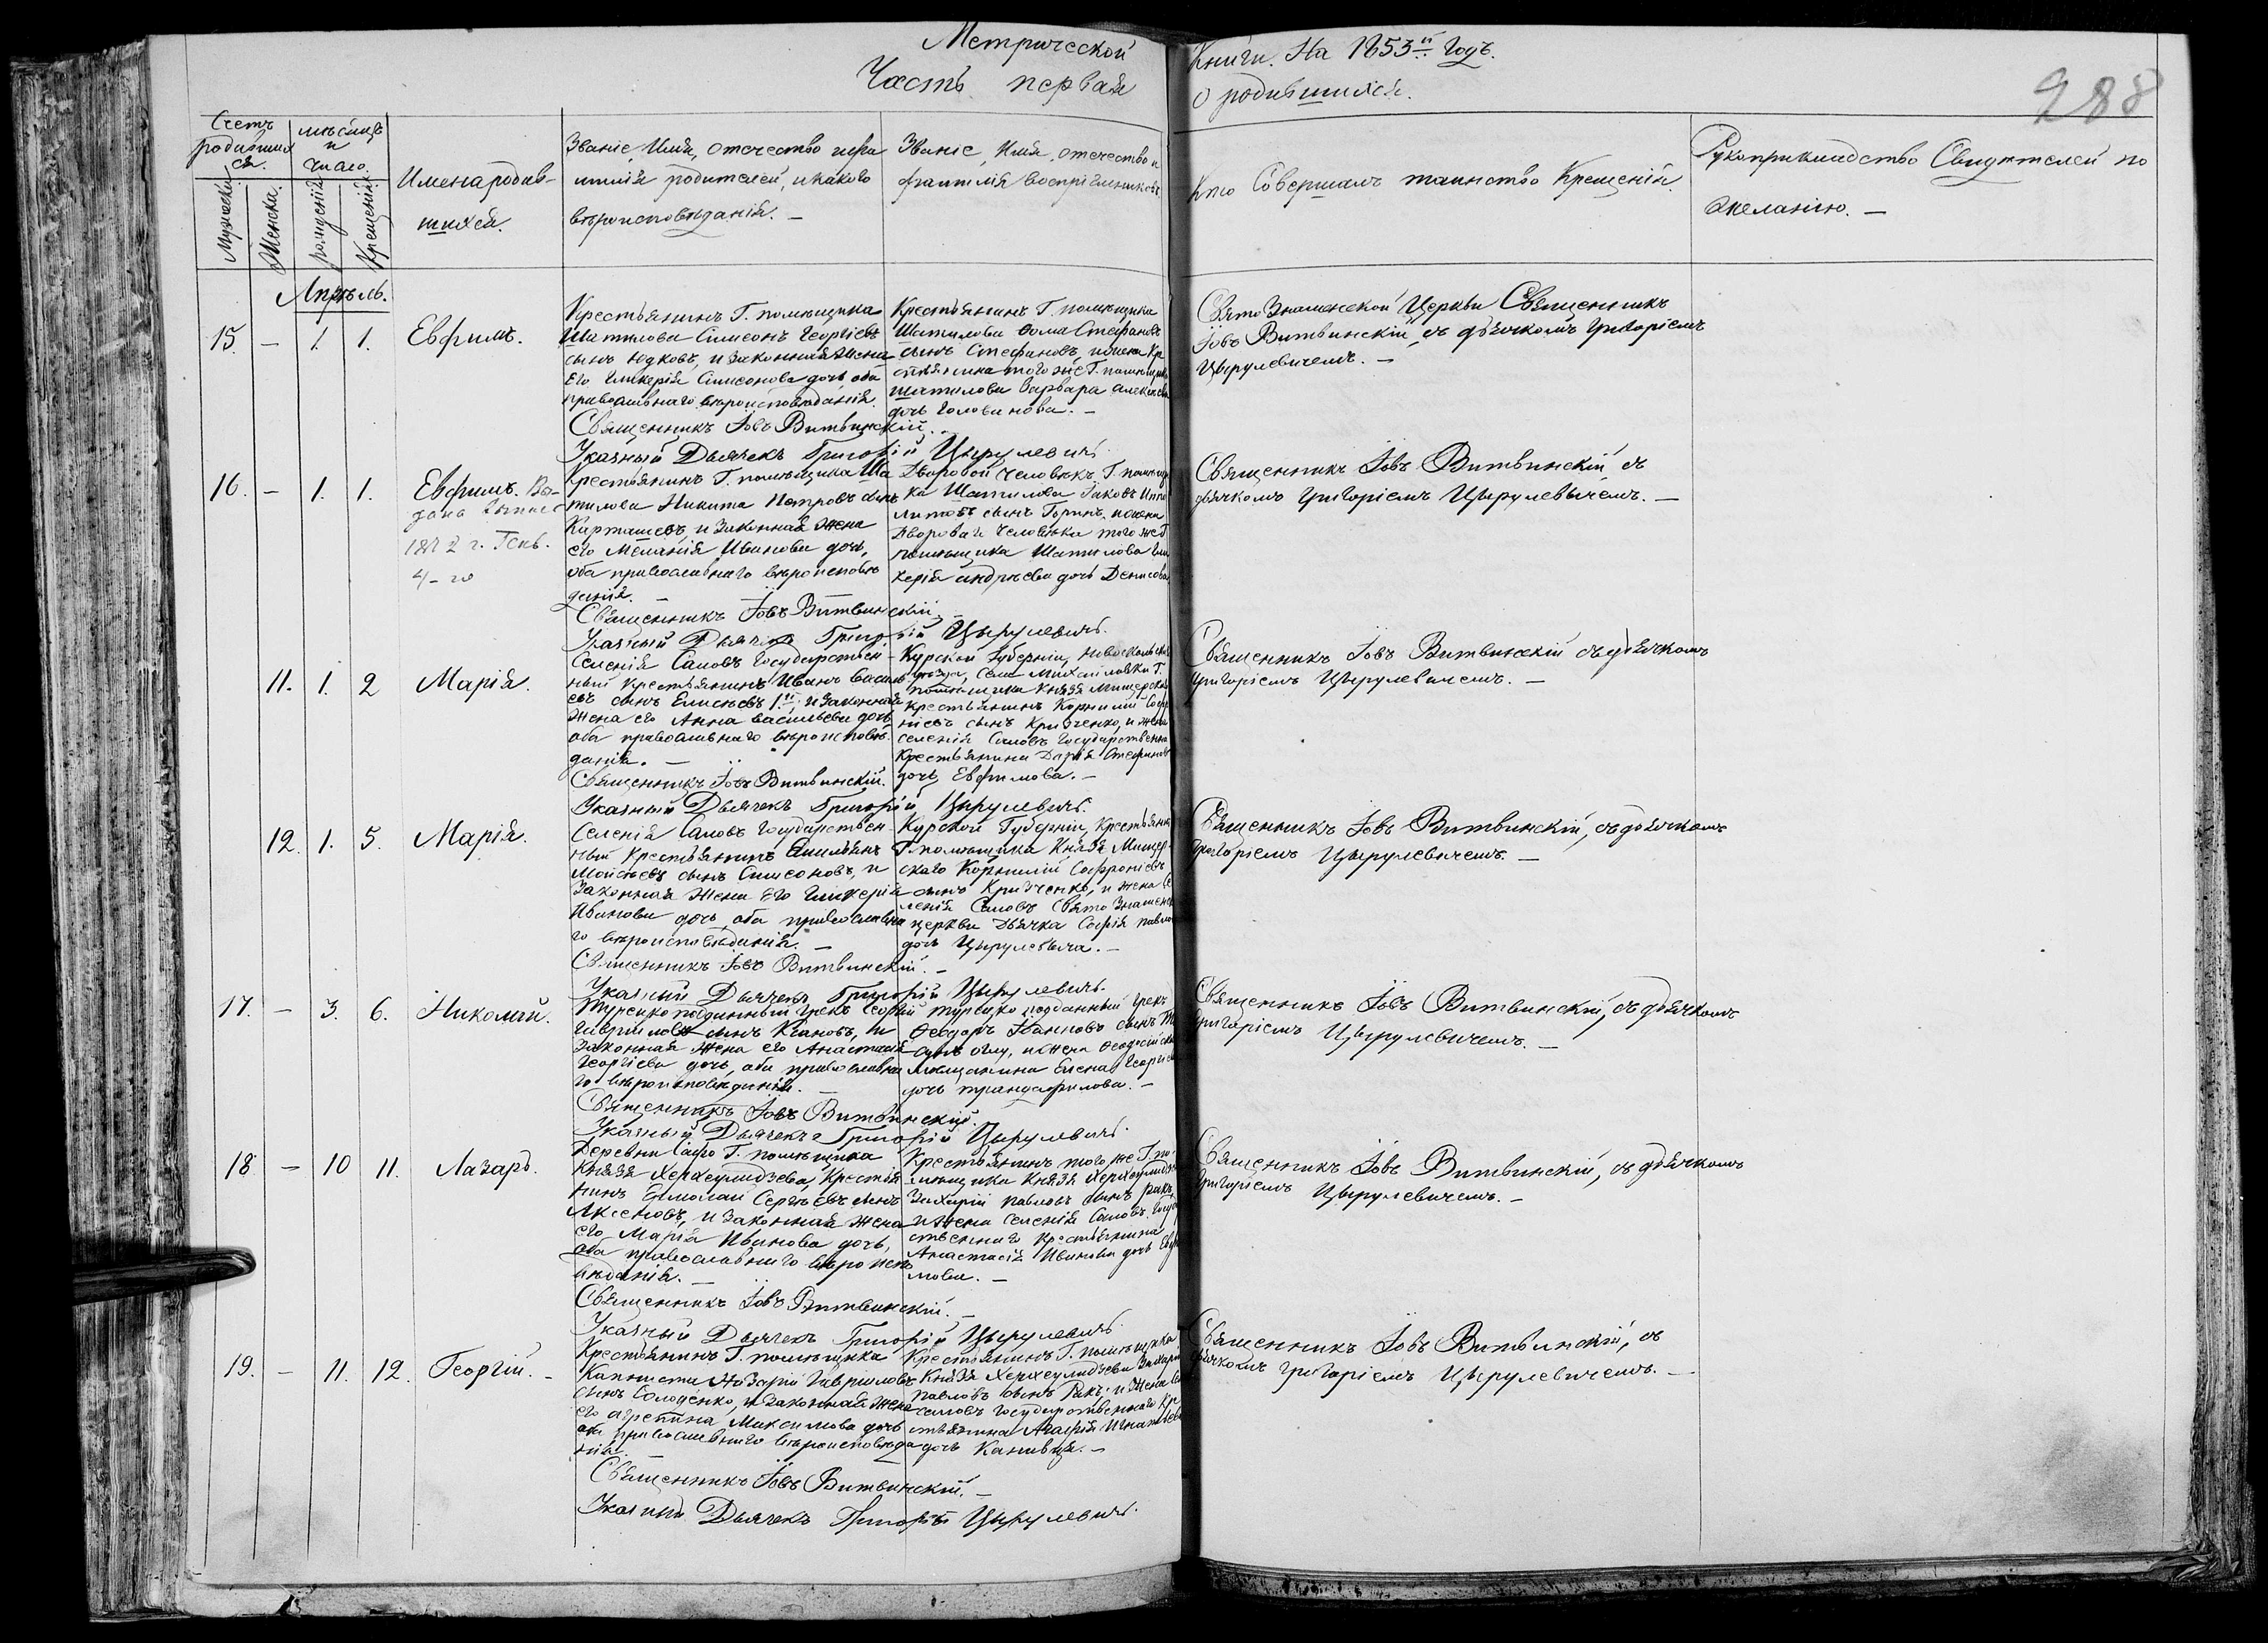 Метрической
Часть первая
Книги. На 1853й годъ.
о родившихся.
288
Счетъ родившихся.
мѣсяцъ и число.
Мужеска.
Женска.
рожденія
Крещенія.
Имена родив-
шихся.
Званіе, Имя, отечество и фа
милія родителей, и какого
вѣроисповѣданія. —
Званіе, Имя, отечество и
фамилія Воспріемниковъ.
Кто Совершалъ таинство Крещенія.
Рукоприкладство Свидѣтелей по
желанію. —
Апрѣль.
15. — 1. 1. Евфимъ.
Крестьянинъ Г. помѣщика
Шатилова Симеонъ Георгіевъ
сынъ Юдковъ, и законная жена
Его Гликерія Симеонова дочь, оба
православнаго вѣроисповѣданія.
Священникъ Іовъ Витвинскій.
Указный Дьячекъ Григорій Цырулевичъ.
Крестьянинъ Г. помѣщика
Шатилова Фома Стефановъ
сынъ Стефановъ, и жена Кре
стьянина того же Г. помѣщика
Шатилова Варвара Алексѣева
дочь Головинова. —
Свято Знаменской Церкви Священникъ
Іовъ Витвинскій, съ дьячкомъ Григоріемъ
Цырулевичемъ. —
16. — 1. 1. Евфимъ. Вы-
дана выпись
1872 г. Генв.
4-го
Крестьянинъ Г. помѣщика Ша
тилова Никита Петровъ сынъ
Карташевъ, и законная жена
его Меланія Иванова дочь,
оба православнаго вѣроисповѣ
данія. —
Священникъ Іовъ Витвинскій.
Указный Дьячекъ Григорій Цырулевичъ.
Дворовой человѣкъ Г. помѣщи
ка Шатилова Іаковъ Иппо
литовъ сынъ Горинъ, и жена
Двороваго человѣка того же Г.
помѣщика Шатилова Гли
керія Андреева дочь Денисова.
Священникъ Іовъ Витвинскій съ
дьячкомъ Григоріемъ Цырулевичемъ. —
11. 1. 2 Марія.
Селенія Саловъ Государствен-
ный крестьянинъ Иванъ Василь
евъ сынъ Елисѣевъ 1й, и законная
жена его Анна Васильева дочь,
оба православнаго вѣроисповѣ-
данія. —
Священникъ Іовъ Витвинскій.
Указный Дьячекъ Григорій Цырулевичъ.
Курской Губерніи, Новооскольскаго
уѣзда, села Михайловки Г.
помѣщика Князя Мищерскаго
крестьянинъ Корнилій Софро
ніевъ сынъ Кривченко, и жена
селенія Саловъ Государственнаго
Крестьянина Дарія Стефанова
дочь Евфимова. —
Священникъ Іовъ Витвинскій съ дьячкомъ
Григоріемъ Цырулевичемъ. —
12. 1. 5. Марія.
Селенія Саловъ Государствен-
ный Крестьянинъ Емильянъ
Моисѣевъ сынъ Симеоновъ, и
законная жена Его Гликерія
Иванова дочь, оба православна
го вѣроисповѣданія. —
Священникъ Іовъ Витвинскій. —
Указный Дьячекъ Григорій Цырулевичъ.
Курской Губерніи, Крестьянинъ
Г. помѣщика Князя Мищер-
скаго Корнилій Софроніевъ
сынъ Кривченко, и жена Се
ленія Саловъ Свято Знаменской
церкви Дьячка Софія Павлова
дочь Цырулевича. —
Священникъ Іовъ Витвинскій, съ дьячкомъ
Григоріемъ Цырулевичемъ. —
17. — 3. 6. Николай.
Турецко подданный Грекъ Георгій
Гавриловъ сынъ Кіановъ, и
законная жена его Анастасія
Георгіева дочь, оба православна
го вѣроисповѣданія. —
Священникъ Іовъ Витвинскій.
Указный Дьячекъ Григорій Цырулевичъ.
Турецко подданный Грекъ
Феодоръ сынъ
оглу, и жена Феодосійскаго
мѣщанина Елена Георгіева
дочь Трандафилова. —
Священникъ Іовъ Витвинскій, съ дьячкомъ
Григоріемъ Цырулевичемъ. —
18. — 10 11. Лазарь.
Деревни Г. помѣщика
Князя Херхеулидзева, Крестья
нинъ Ермолай Сергѣевъ сынъ
Аксеновъ, и законная жена
его Марія Иванова дочь,
оба православнаго вѣроиспо
вѣданія. —
Священникъ Іовъ Витвинскій. —
Указный Дьячекъ Григорій Цырулевичъ.
Крестьянинъ того же Г. по
мѣщика Князя Херхеулидзева
Захарій Павловъ сынъ Ракъ,
и жена селенія Саловъ Госуд
ственнаго Крестьянина
Анастасія Иванова дочь Евфи
мова. —
Священникъ Іовъ Витвинскій, съ дьячкомъ
Григоріемъ Цырулевичемъ. —
19. — 11. 12. Георгій. —
Крестьянинъ Г. помѣщика
Капниста Назарій Гавриловъ
сынъ Солоденко, и законная жена
его Агрепина Максимова дочь
оба православнаго вѣроисповѣда
нія. —
Священникъ Іовъ Витвинскій. —
Указный Дьячекъ Григорій Цырулевичъ.
Крестьянинъ Г. помѣщика
Князя Херхеулидзева Захарій
Павловъ сынъ Ракъ; и жена Се
саловъ Государственнаго Кре
стьянина Агафія Игнатьева
дочь Канивця. —
Священникъ Іовъ Витвинскій, съ
дьячкомъ Григоріемъ Цырулевичемъ. —